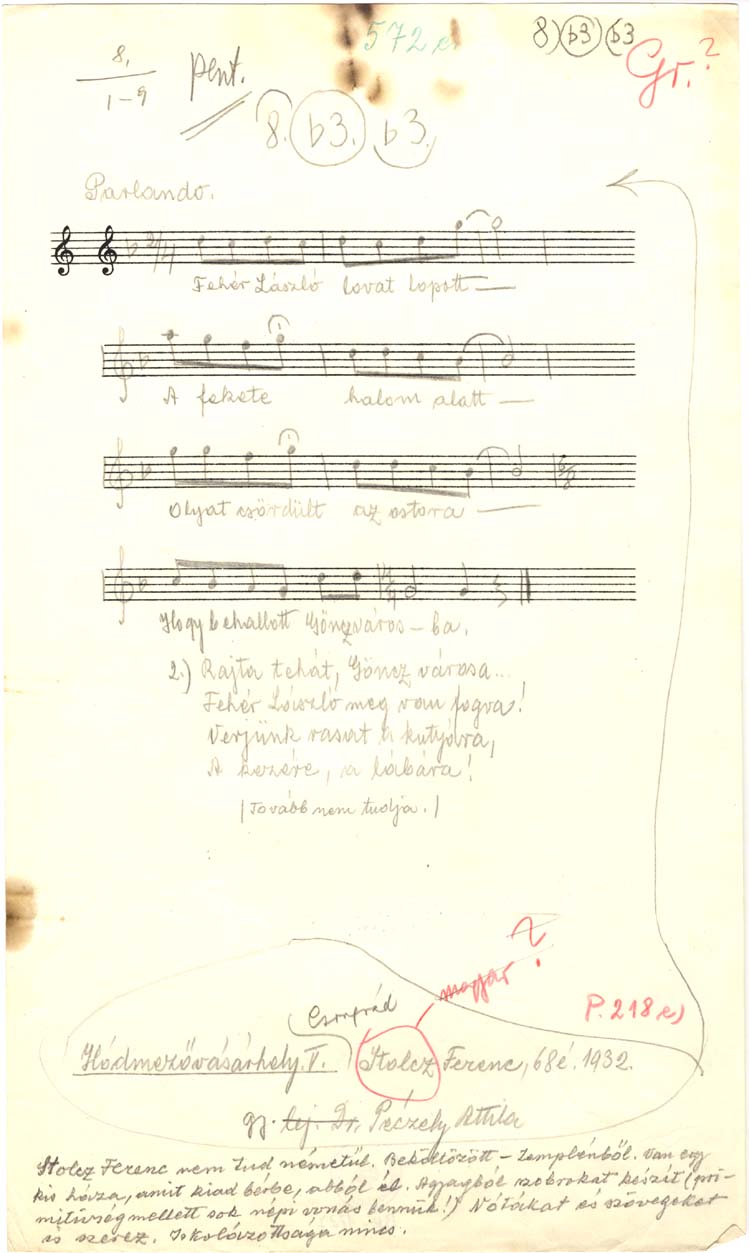 572 e
8) b3 (b3
8.
1-9
pent.
Gr.?
8. b3. b3.
Parlando.
2/4
Fehér László lovat lopott —
A fekete halom alatt —
Olyat csördült az ostora —
6/8
Hogy behallott Gönzváros – ba.
2.) Rajta tehát, Göncz városa...
Fehér László meg van fogva!
Verjünk vasat a kutyára,
A kezére, a lábára!
(Tovább nem tudja.)
magyar ?
Csongrád
P. 218 e)
Hódmezővásárhely. V. Stolcz Ferenc, 68 é. 1932.
gy. lej. Dr. Péczely Attila
Stolcz Ferenc nem tud németül. Beköltözött – Zemplénből. Van egy
kis háza, amit kiad bérbe, abból él. Agyagból szobrokat készít (pri-
mitívség mellett sok népi vonás bennük!) Nótákat és szövegeket
is szerez. Iskolázottsága nincs.